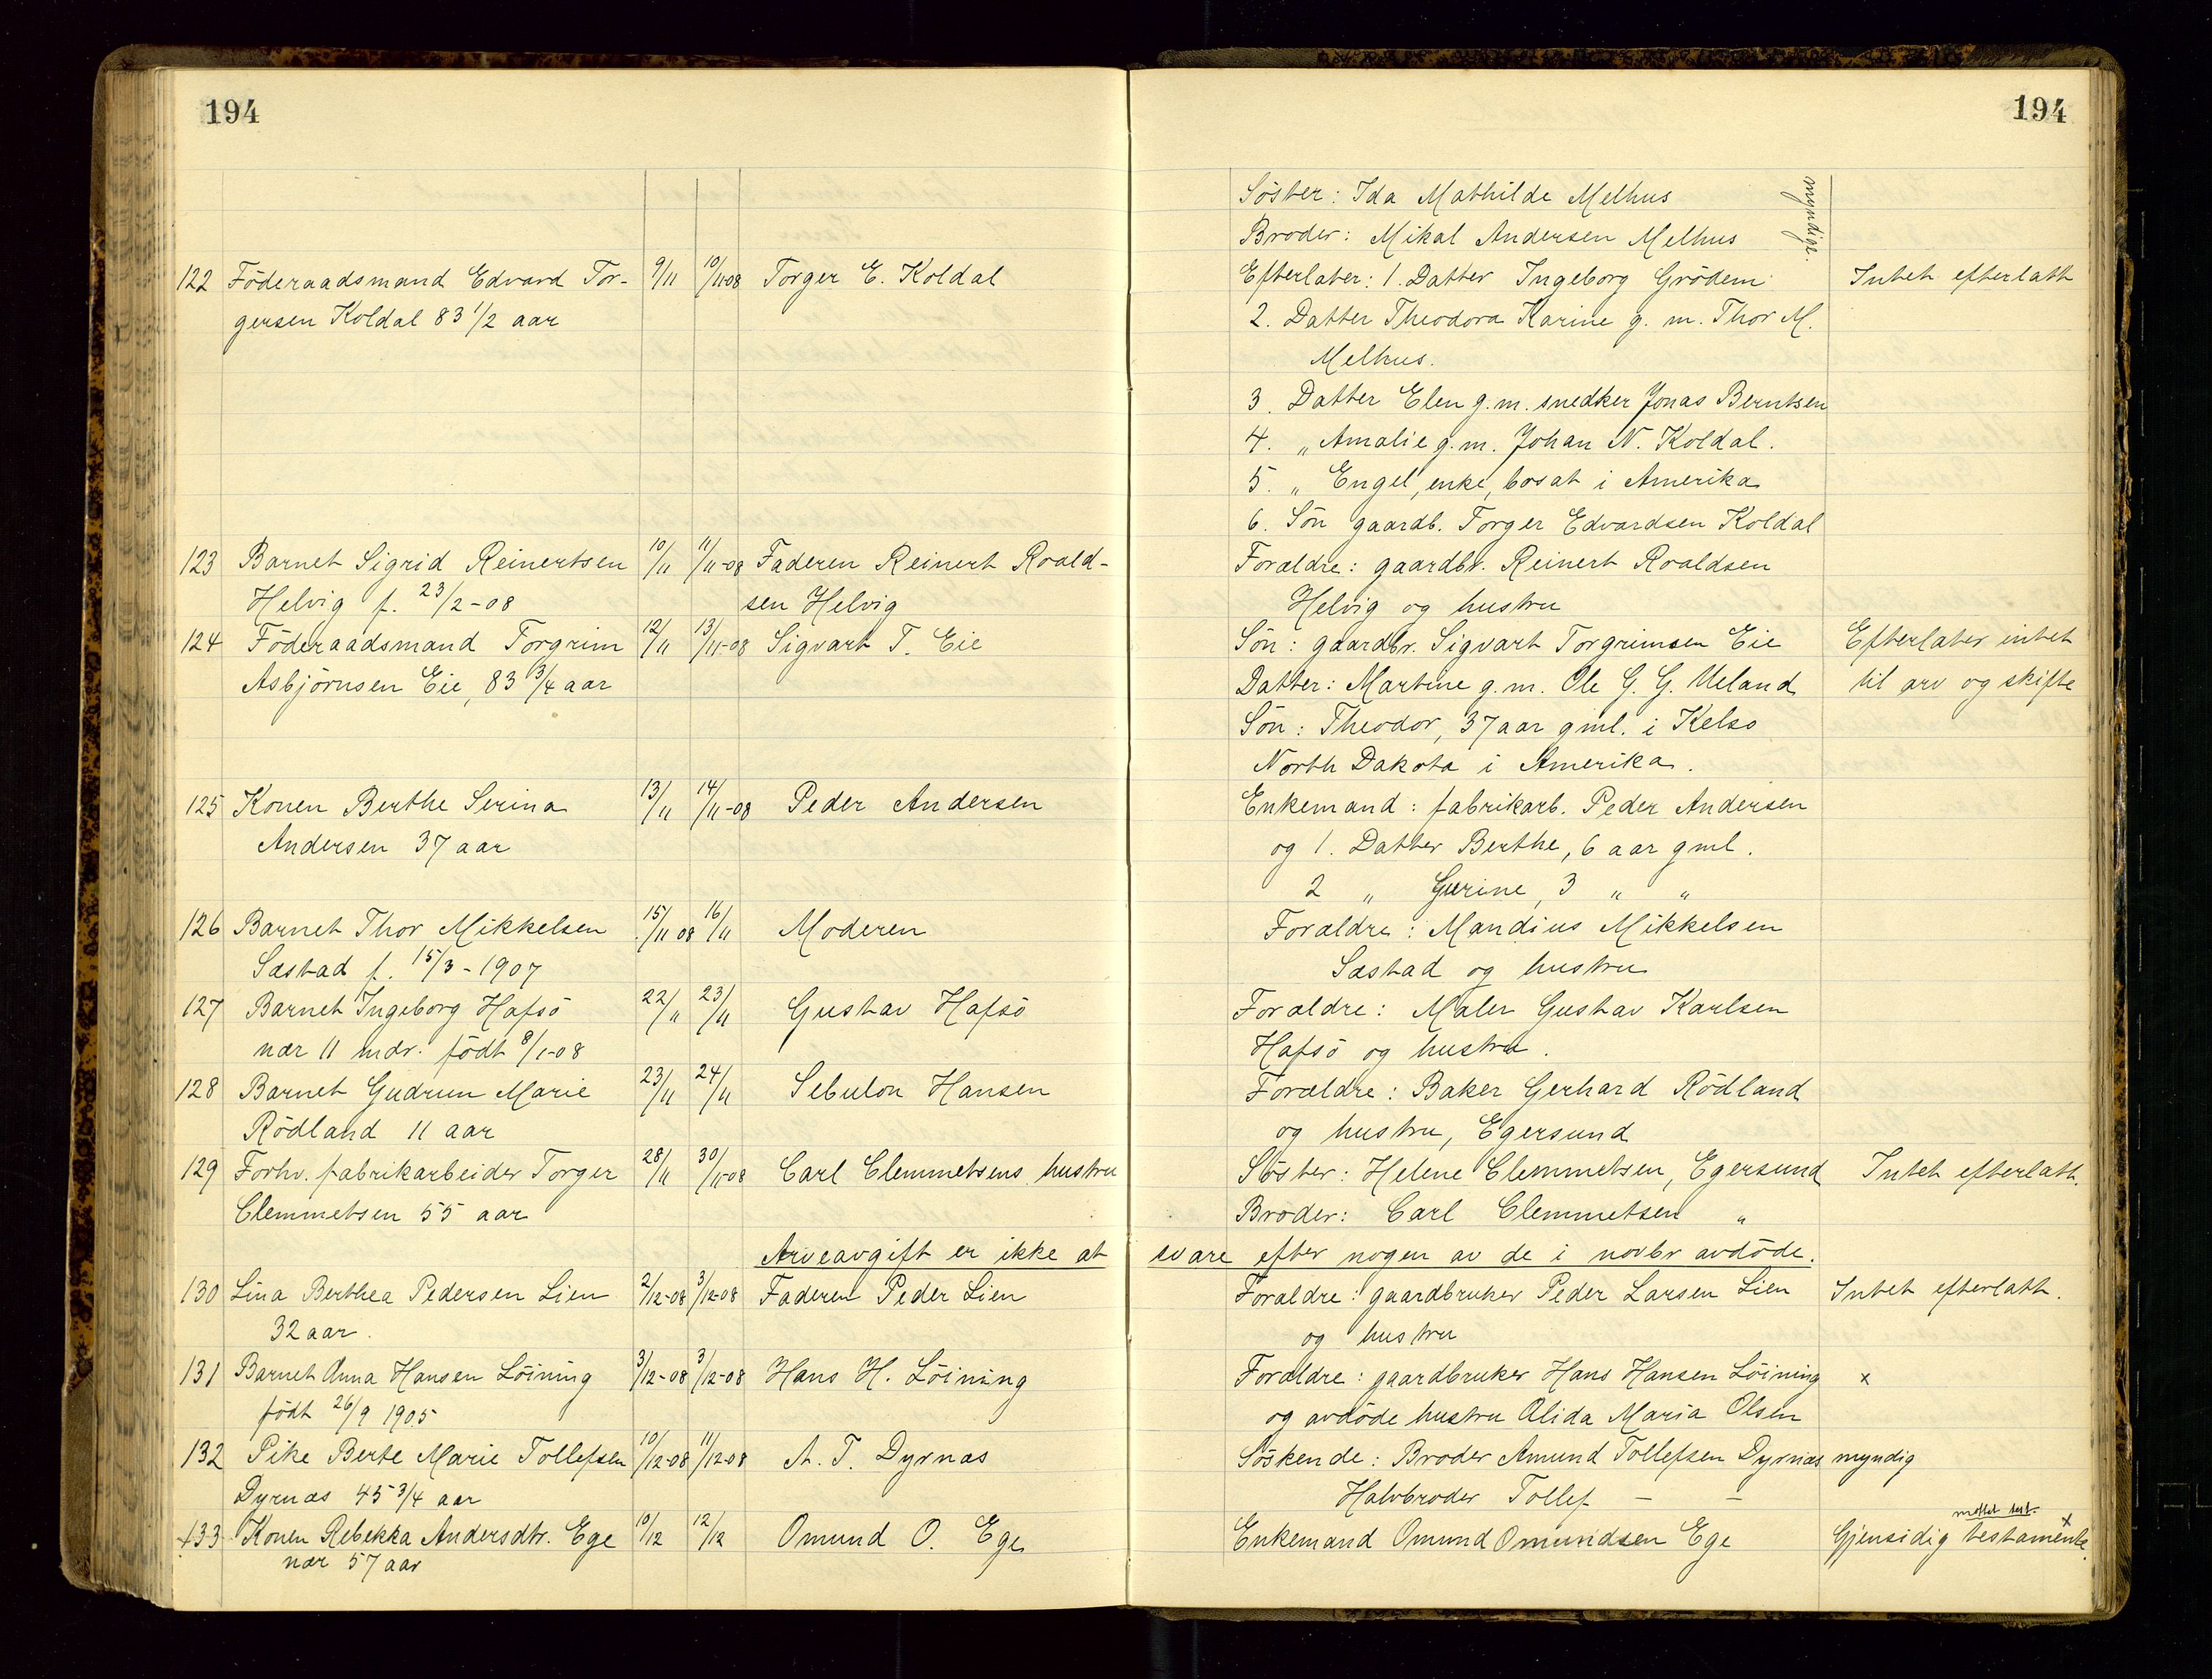 194
122 Föderaadsmand Edvard Tor- 9/11 10/11-08 Torger E. Koldal
gersen Koldal 83 1/2 aar
123 Barnet Sigrid Reinertsen 10/11 11/11-08 Faderen Reinert Roald-
Helvig f. 23/2-08 sen Helvig
124 Föderaadsmand Torgrim 12/11 13/11-08 Sigvart T. Eie
Asbjörnsen Eie, 83 3/4 aar
125 Konen Berthe Serina 13/11 14/11-08 Peder Andersen
Andersen 37 aar
126 Barnet Thor Mikkelsen 15/11 08 16/11 Moderen
Sæstad f. 15/3-1907
127 Barnet Ingeborg Hafsö 22/11 23/11 Gustav Hafsö
nær 11 mdr. födt 8/1-08
128 Barnet Gudrun Marie 23/11 24/11 Sebulon Hansen
Rödland 11 aar
129 Forhv. fabrikarbeider Torger 28/11 30/11-08 Carl Clemmetsens hustru
Clemmetsen 55 aar
Arveavgift er ikke at
130 Lina Berthea Pedersen Lien 2/12-08 3/12-08 Faderen Peder Lien
32 aar.
131 Barnet Anna Hansen Löining 3/12-08 3/12-08 Hans H. Löining
födt 26/9 1905
132 Pike Berte Marie Tollefsen 10/12-08 11/12-08 A. T. Dyrnæs
Dyrnæs 45 3/4 aar
133 Konen Rebekka Andersdtr. Ege 10/12 12/12 Omund O. Ege
nær 57 aar
194
Söster: Ida Mathilde Melhus myndige.
Broder: Mikal Andersen Melhus
Efterlater: 1. Datter Ingeborg Grödem Intet efterlatt
2. Datter Theodora Karine g. m. Thor M.
Melhus.
3. Datter Elen g. m. snedker Jonas Berntsen
4. „ Amalie g. m. Johan N. Koldal.
5. „ Engel, enke, bosat i Amerika
6. Sön gaardb. Torger Edvardsen Koldal
Forældre: gaardbr. Reinert Roaldsen
Helvig og hustru
Sön: gaardbr. Sigvart Torgrimsen Eie Efterlater intet
Datter: Martine g. m. Ole G. G. Ueland til arv og skifte
Sön: Theodor, 37 aar gml. i Kelso
North Dakota i Amerika.
Enkemand: fabrikarb. Peder Andersen
og 1. Datter Berthe, 6 aar gml.
2 „ Gurine, 3 „ „
Forældre: Mandius Mikkelsen
Sæstad og hustru
Forældre: Maler Gustav Karlsen
Hafsö og hustru.
Forældre: Baker Gerhard Rödland
og hustru, Egersund
Söster: Helene Clemmetsen, Egersund Intet efterlatt.
Broder: Carl Clemmetsen „
svare efter nogen av de i novbr avdöde.
Forældre: gaardbruker Peder Larsen Lien Intet efterlatt.
og hustru
Forældre: gaardbruker Hans Hansen Löining x
og avdöde hustru Alida Maria Olsen
Söskende: Broder Amund Tollefsen Dyrnæs myndig
Halvbroder Tollef — —
mottat test. x
Enkemand Omund Omundsen Ege Gjensidig testamente.